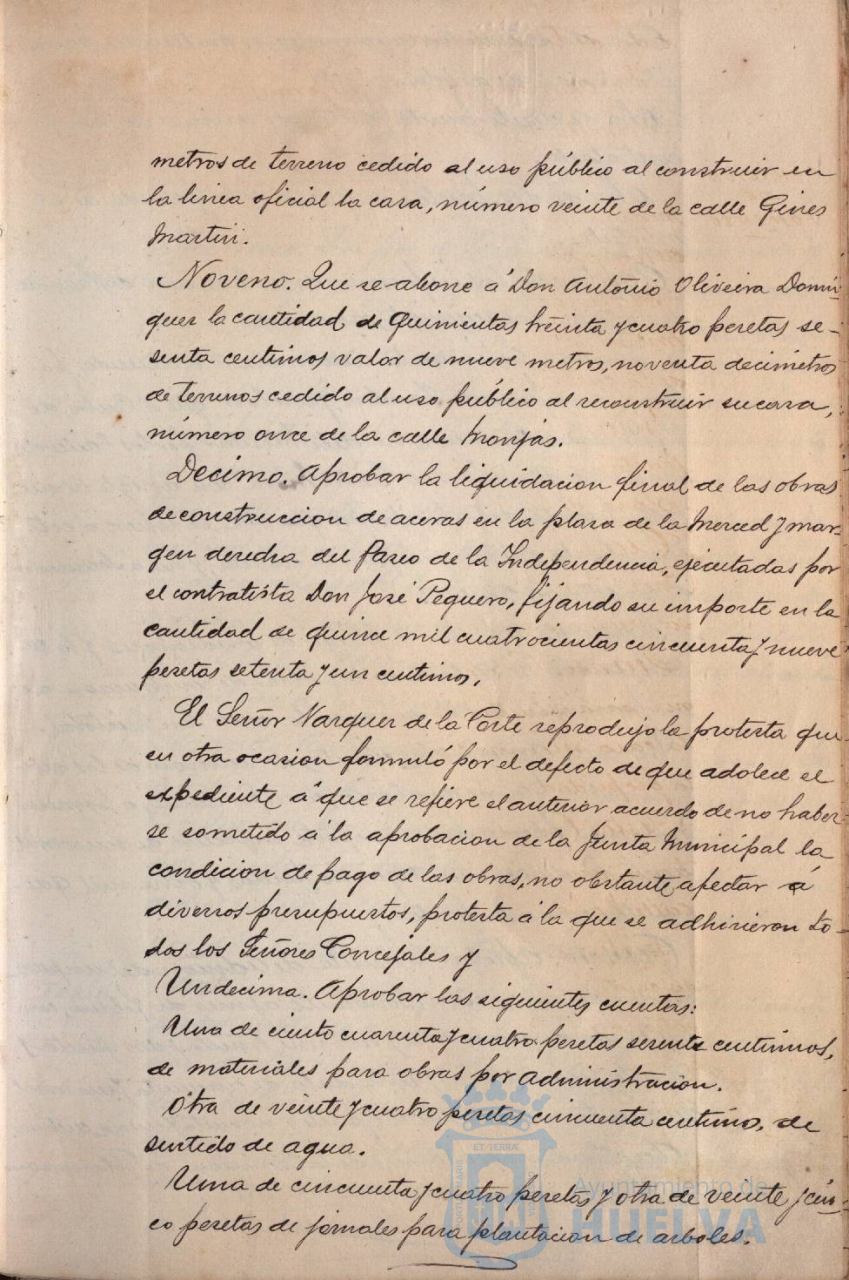 metros de terreno cedido al uso público al construir en
la linea oficial la casa, número veinte de la calle Gines
Martin.
Noveno. Que se abone á Don Antonio Oliveira Domin
guez la cantidad de quinientas treinta y cuatro pesetas se-
senta centimos valor de nueve metros, noventa decimetros
de terrenos cedido al uso público al reconstruir su casa,
número once de la calle Monjas.
Decimo. Aprobar la liquidacion final de las obras
de construccion de aceras en la plaza de la Merced y mar-
gen derecha del Paseo de la Independencia, ejecutadas por
el contratista Don José Peguero, fijando su importe en la
cantidad de quince mil cuatrocientas cincuenta y nueve
pesetas setenta y un centimos.
El Señor Vazquez de la Corte reprodujo la protesta que
en otra ocasion formuló por el defecto de que adolece el
expediente á que se refiere el anterior acuerdo de no haber
se sometido á la aprobacion de la Junta Municipal la
condicion de pago de las obras, no obstante afectar á
diversos presupuestos, protesta á la que se adhirieron to-
dos los Señores Concejales y
Undecima. Aprobar las siguientes cuentas:
Una de ciento cuarenta y cuatro pesetas sesenta centimos,
de materiales para obras por administracion.
Otra de veinte y cuatro pesetas cincuenta centimos, de
surtido de agua.
Una de cincuenta y cuatro pesetas y otra de veinte y cin
co pesetas de jornales para plantacion de arboles.
Ayuntamiento de
HUELVA